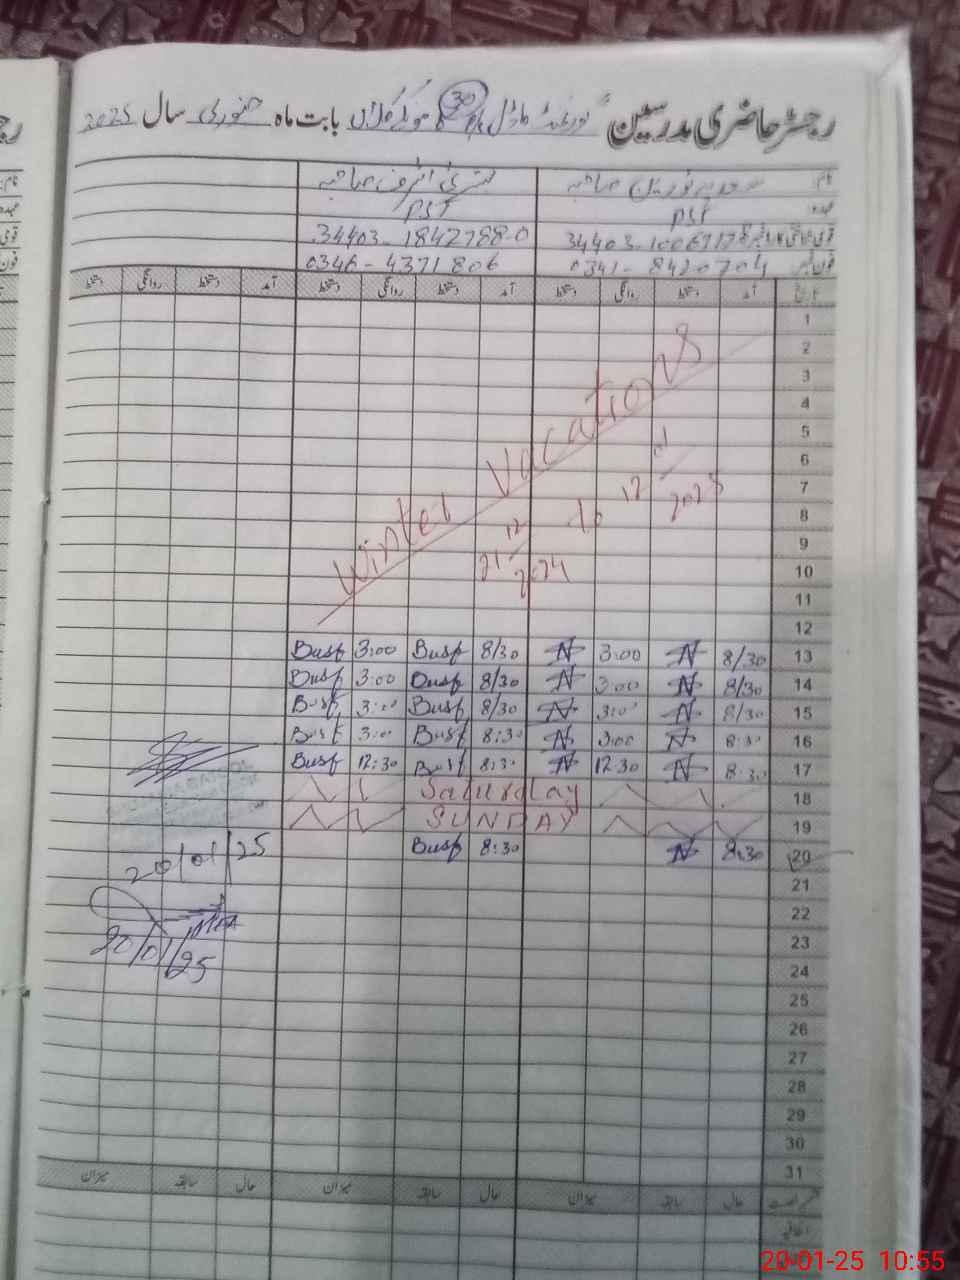 رجسٹر حاضری مدرسین گورنمنٹ ماڈل 30 بابت ماہ جنوری سال 2025
نام سعدیہ نورین صاحبہ بشریٰ اشرف صاحبہ
عہدہ PST PST
34403-1842788-0
فون نمبر 0341-8420704 0346-4371806
تاریخ آمد دستخط روانگی دستخط آمد دستخط روانگی دستخط آمد دستخط روانگی دستخط
1
2
3
4
5
6
7
8
9
10
11
12
Winter Vacations
21/12/2024 to 12/01/2025
13 8/30 N 3:00 N 8/30 Busf 3:00 Busf
14 8/30 N 3:00 N 8/30 Busf 3:00 Busf
15 8/30 N 3:00 N 8/30 Busf 3:00 Busf
16 8:30 N 3:00 N 8:30 Busf 3:00 Busf
17 8:30 N 12:30 N 8:30 Busf 12:30 Busf
18 Saturday
19 SUNDAY
20 8:30 N 8:30 Busf
20/01/25
21
22
20/01/25
23
24
25
26
27
28
29
30
31
حال سابقہ میزان حال سابقہ میزان حال سابقہ میزان
20-01-25 10:55